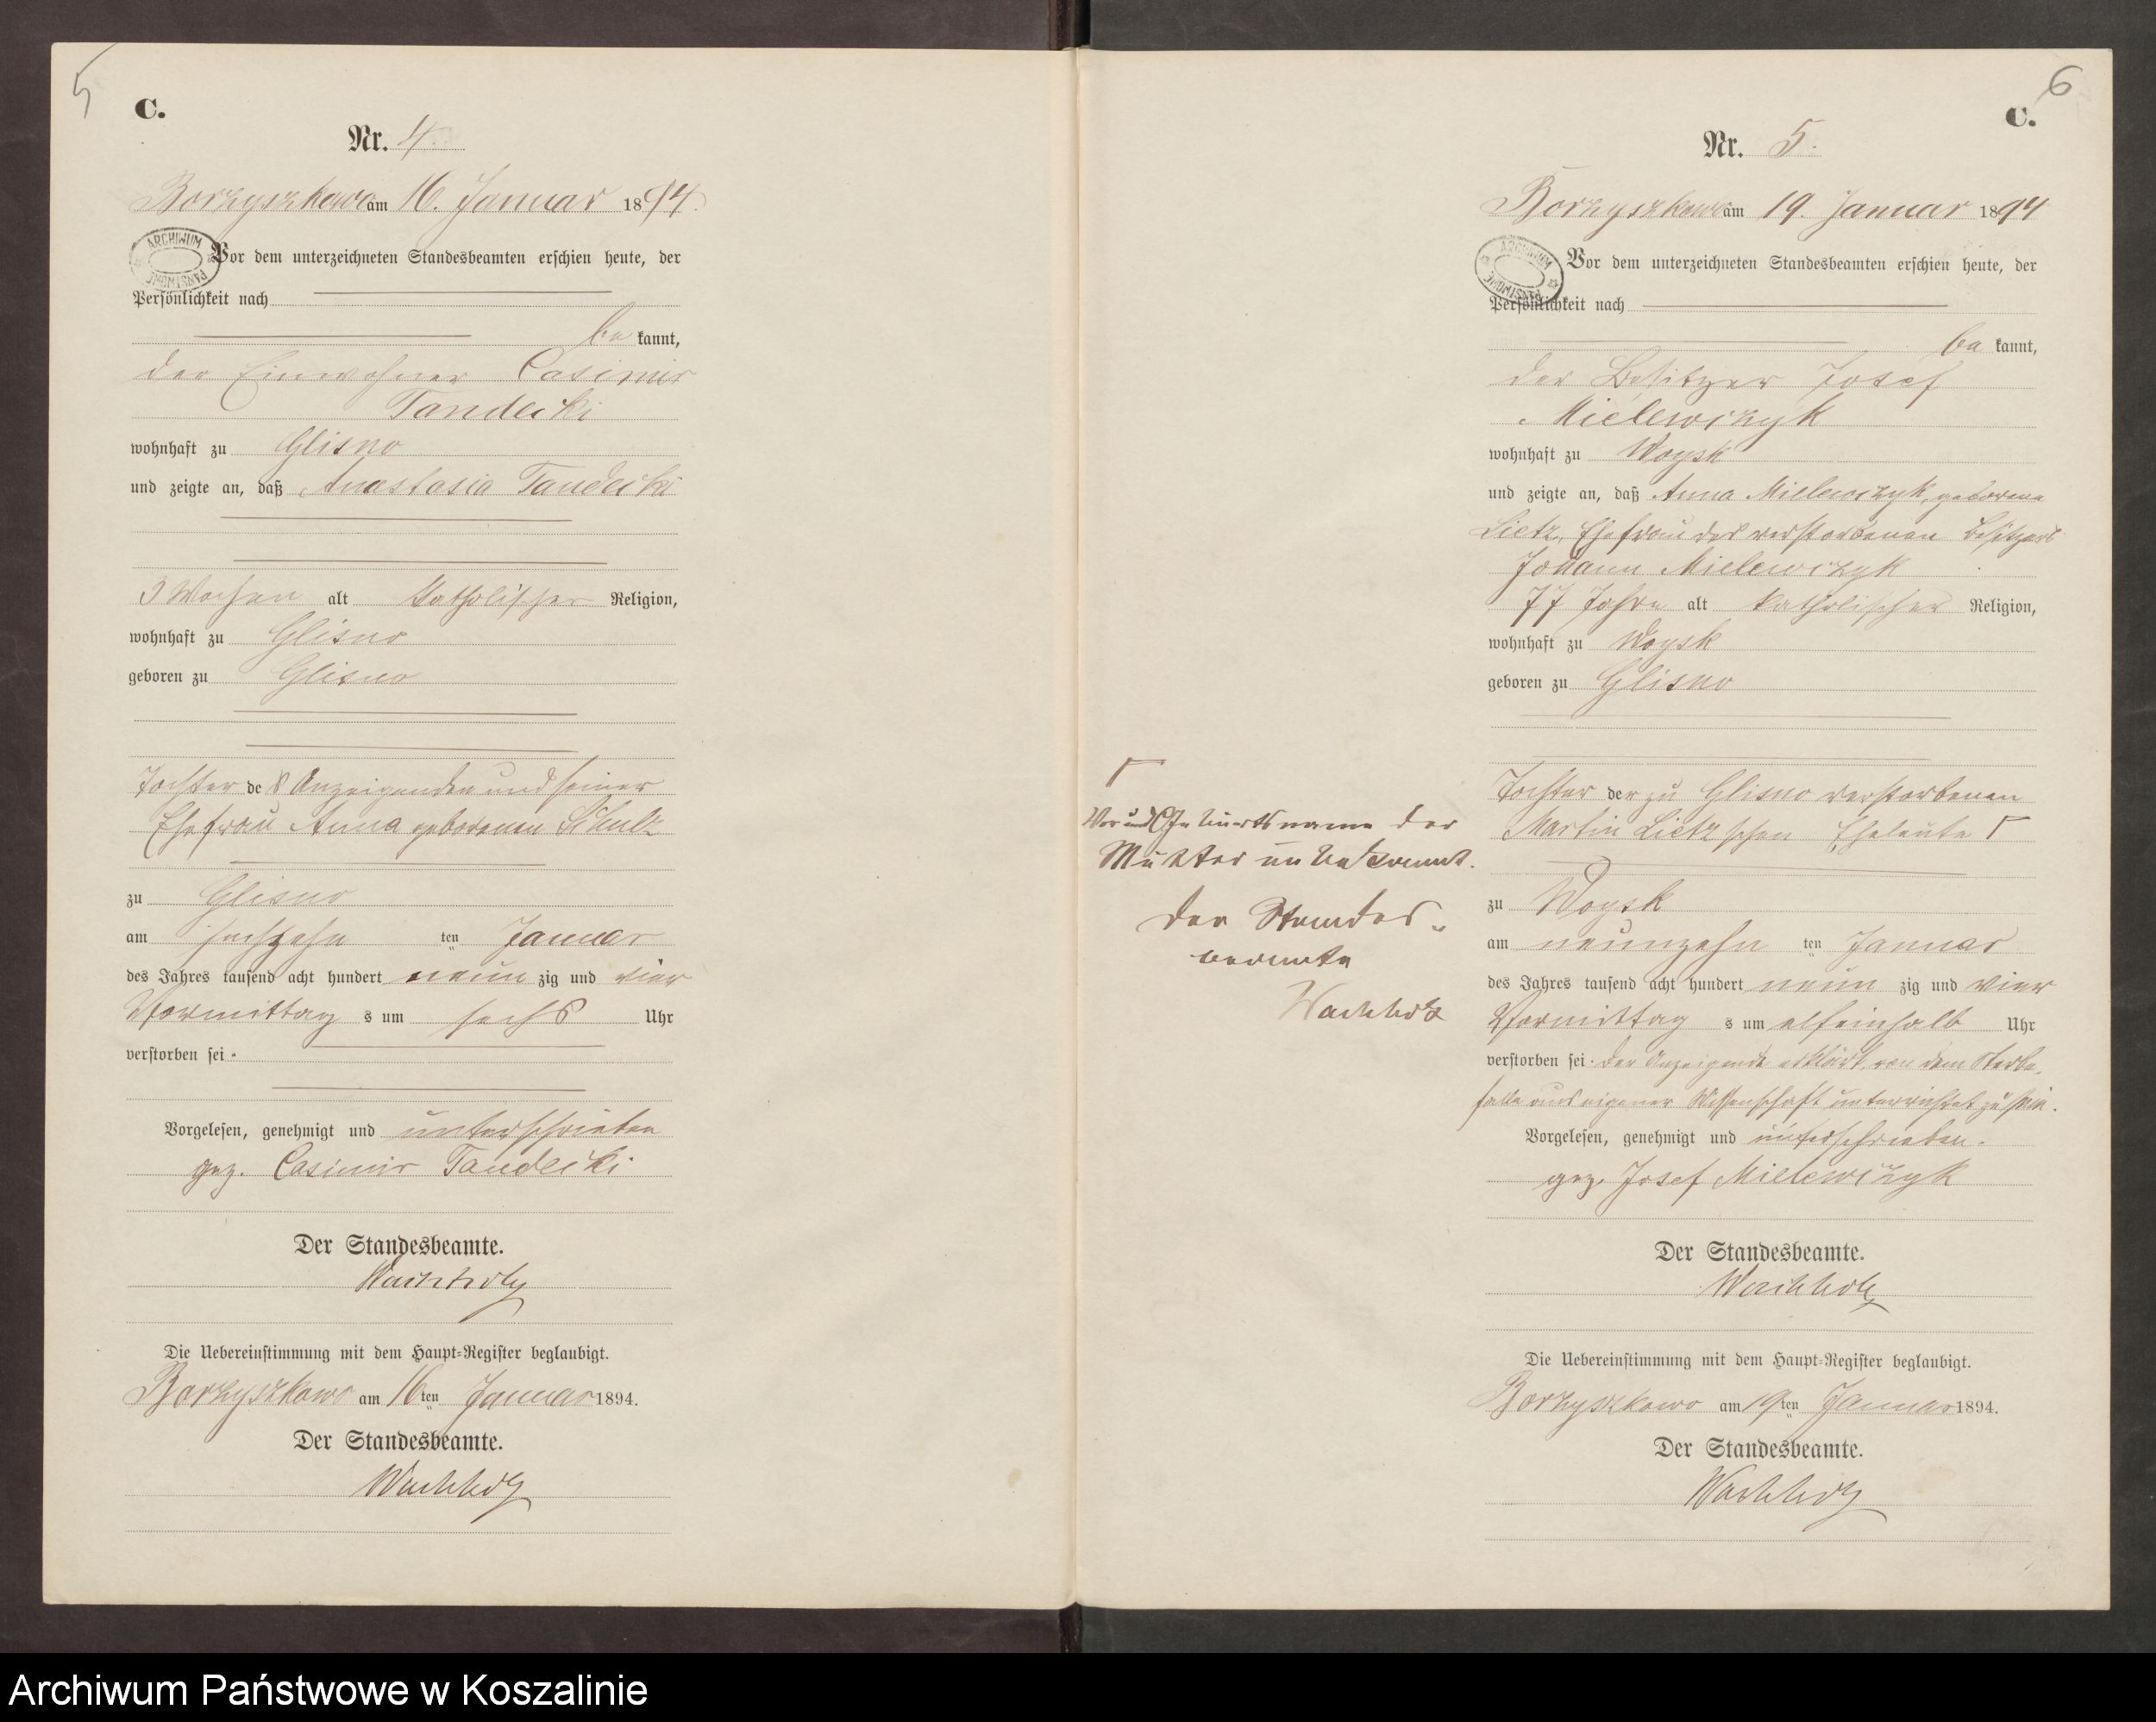 5
C.
Nr. 4.
Borzyszkowo am 16. Januar 1894.
ARCHIWUM PAŃSTWOWE
Vor dem unterzeichneten Standesbeamten erschien heute, der
Persönlichkeit nach
bekannt,
der Einwohner Casimir
Tandecki
wohnhaft zu Glisno
und zeigte an, daß Anastasia Tandecki
3 Wochen alt katholischer Religion,
wohnhaft zu Glisno
geboren zu Glisno
Tochter des Anzeigenden und seiner
Ehefrau Anna geborenen Schulz
zu Glisno
am sechzehn ten Januar
des Jahres tausend acht hundert neun zig und vier
Vormittags um sechs Uhr
verstorben sei.
Vorgelesen, genehmigt und unterschrieben
gez. Casimir Tandecki
Der Standesbeamte.
Wachholz
Die Uebereinstimmung mit dem Haupt-Register beglaubigt.
Borzyszkowo am 16ten Januar 1894.
Der Standesbeamte.
Wachholz
6
C.
Nr. 5.
Borzyszkowo am 19. Januar 1894
ARCHIWUM PAŃSTWOWE
Vor dem unterzeichneten Standesbeamten erschien heute, der
Persönlichkeit nach
bekannt,
der Besitzer Josef
Mielewczyk
wohnhaft zu Woysk
und zeigte an, daß Anna Mielewczyk, geborene
Lietz, Ehefrau des verstorbenen Besitzers
Johann Mielewczyk
77 Jahre alt katholischer Religion,
wohnhaft zu Woysk
geboren zu Glisno
Tochter der zu Glisno verstorbenen
Martin Lietz'schen Eheleute Γ
zu Woysk
am neunzehn ten Januar
des Jahres tausend acht hundert neun zig und vier
Vormittags um elfeinhalb Uhr
verstorben sei. Der Anzeigende erklärt, von dem Sterbe-
falle aus eigener Wissenschaft unterrichtet zu sein.
Vorgelesen, genehmigt und unterschrieben.
gez. Josef Mielewczyk
Der Standesbeamte.
Wachholz
Die Uebereinstimmung mit dem Haupt-Register beglaubigt.
Borzyszkowo am 19ten Januar 1894.
Der Standesbeamte.
Wachholz
Γ
Vor und Geburtsname der
Mutter unbekannt.
Der Standes-
beamte
Wachholz
Archiwum Państwowe w Koszalinie